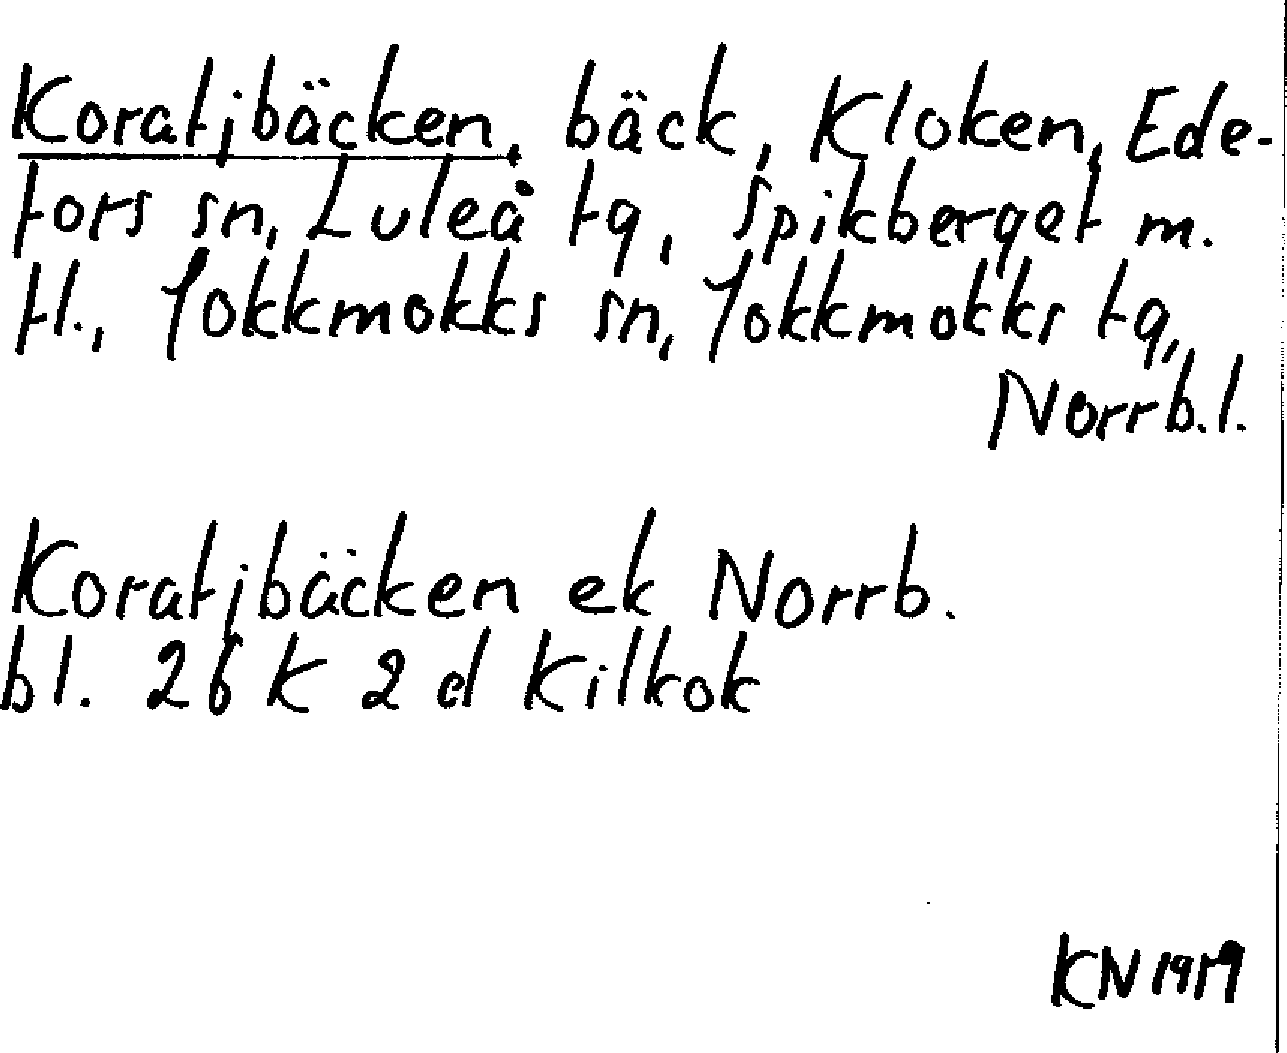 Koratjbäcken, bäck, Kloken, Ede-
fors sn, Luleå tg, Spikberget m.
fl., Jokkmokks sn, Jokkmokks tg,
Norrb.l.
Koratjbäcken ek Norrb.
bl. 26 K 2 d Kilkok
KN 1979